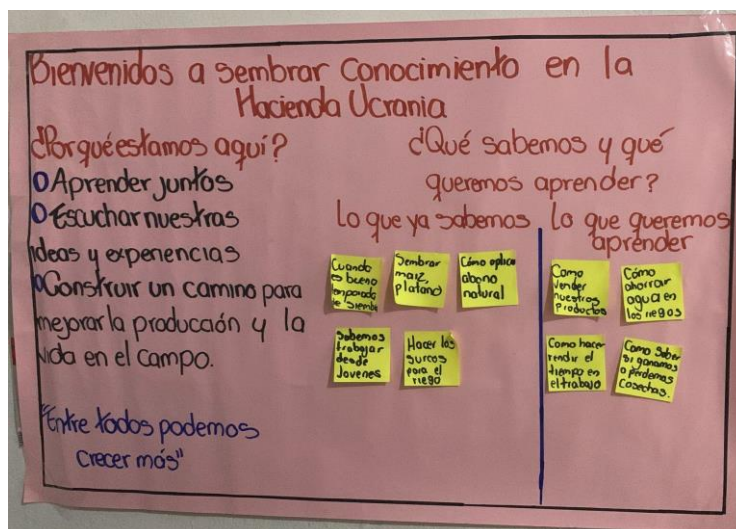 Bienvenidos a sembrar conocimiento en la
Hacienda Ucrania
¿Por qué estamos aquí?
Aprender juntos
Escuchar nuestras
ideas y experiencias
Construir un camino para
mejorar la producción y la
vida en el campo.
"Entre todos podemos
crecer más"
¿Qué sabemos y qué
queremos aprender?
Lo que ya sabemos
Cuando
es bueno
temporada
de siembr
Sembrar
maiz,
platano
Cómo aplica
abono
natural
Sabemos
trabajar
desde
Jovenes
Hacer los
surcos
para el
riego
Lo que queremos
aprender
Como
vender
nuestros
productos
Cómo
ahorrar
agua en
los riegos
Como hacer
rendir el
tiempo en
el trabajo
Como saber
si ganamos
o perdemos
Cosechas.